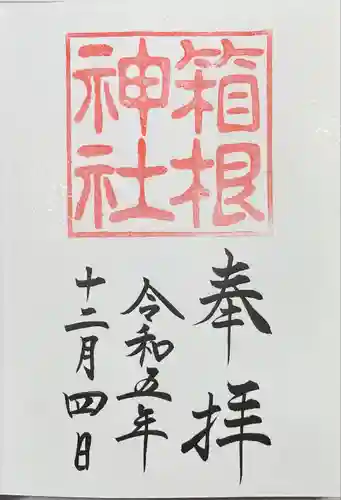 箱根
神社
奉拝
令和五年
十二月四日